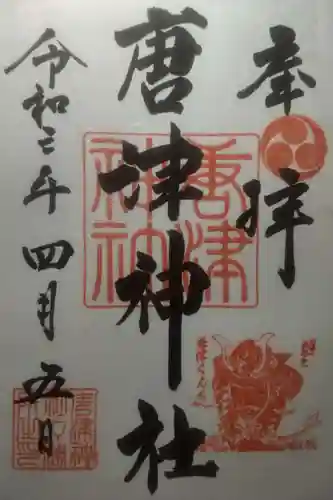 奉拝
唐津神社
令和二年四月五日
唐津
神社